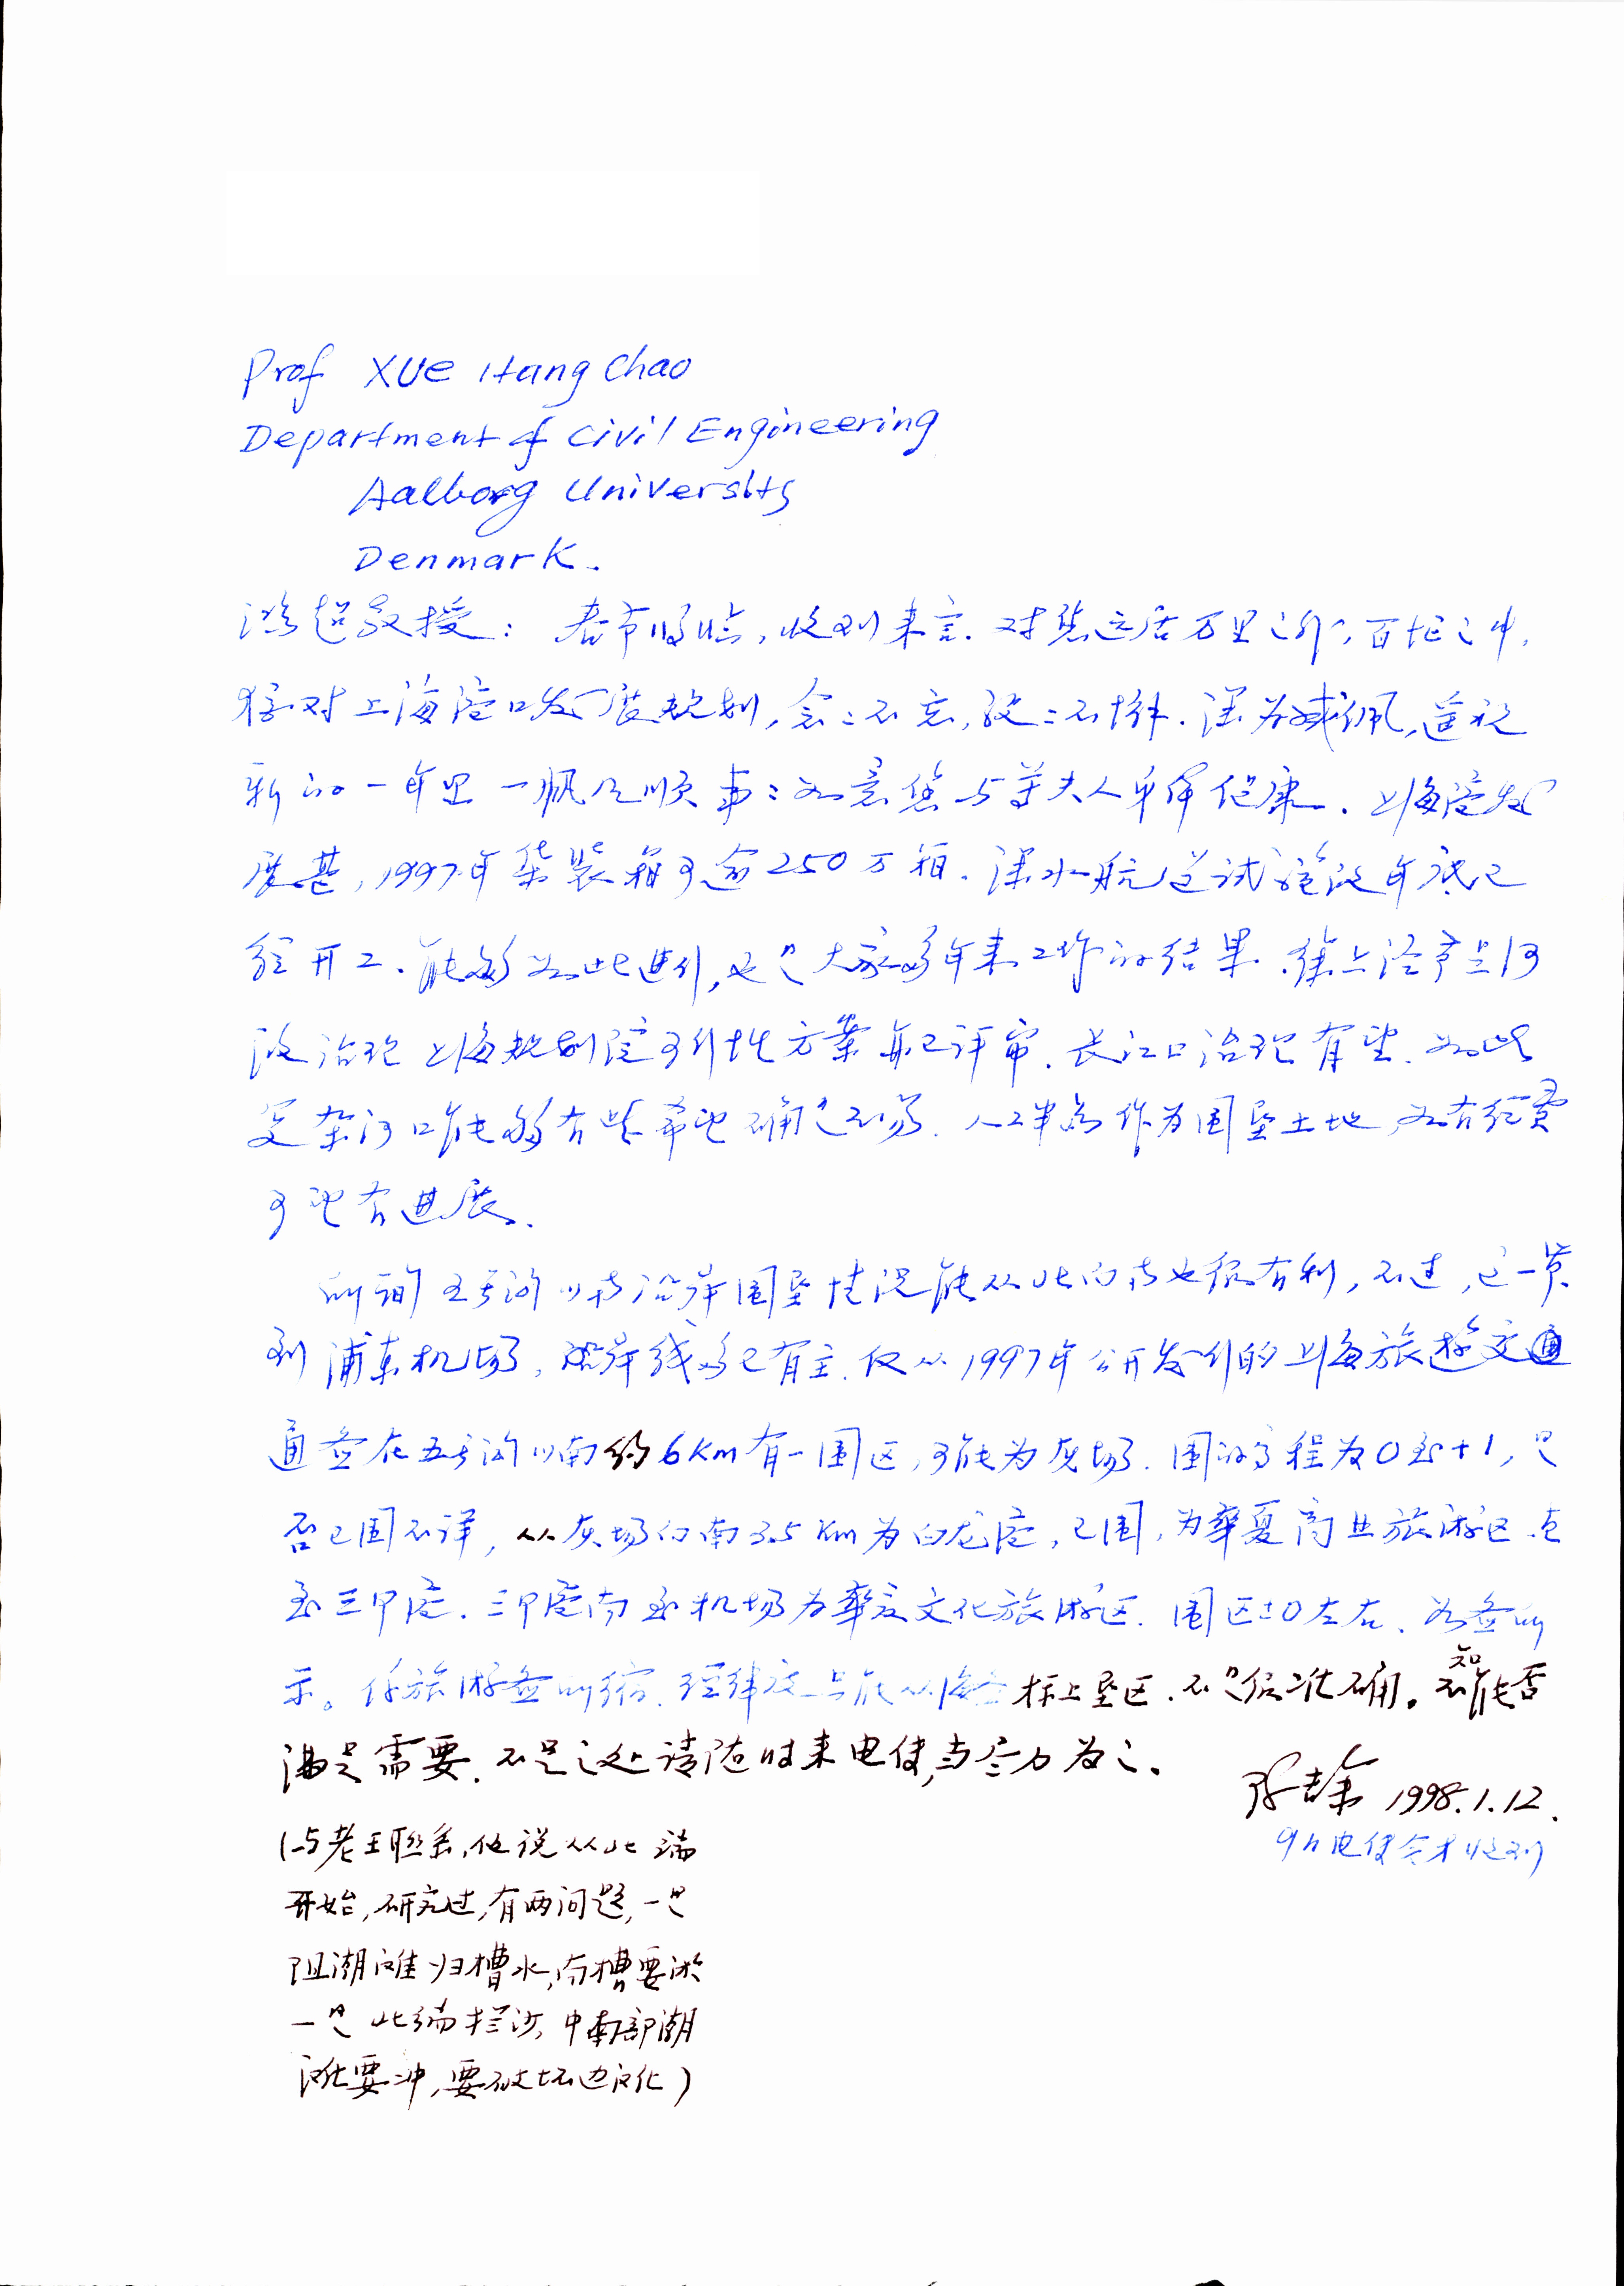 Prof XUE Hang Chao
Department of Civil Engineering
Aalborg University
Denmark.
鸿超教授： 春节将临，收到来言．对您远居万里之外，百忙之中，
犹对上海港口发展规划，念念不忘，孜孜不懈．深为感佩，遥祝
新的一年里一帆风顺事事如意您与尊夫人身体健康．上海港发
展甚，1997年集装箱可逾250万箱．深水航道试验段年底已
经开工．能够如此进行，也是大家多年来工作的结果．徐六泾
段治理上海规划院可行性方案亦已评审．长江口治理有望．如此
复杂河口能够有些希望确是不易．人工半岛作为围垦土地，如有经费
可望有进展．
所询五号沟以南沿岸围垦情况能从此向南也很有利，不过，这一段
到浦东机场，沿岸线多已有主．仅从1997年公开发行的上海旅游交通
通图在五号沟以南约6Km有一围区，可能为灰场．围的高程为0至+1，是
否已围不详，从灰场向南3.5Km为白龙港，已围，为华夏商业旅游区直
至三甲港．三甲港南至机场为华夏文化旅游区．围区±0左右．如图所
示。 依旅游图所缩．经纬度只能从海图标上垦区．不是很准确。不知能否
满足需要．不足之处请随时来电传，当尽力为之。
1998.1.12.
9日电传今才收到
（与老王联系，他说从北端
开始，研究过，有两问题，一是
阻潮滩归槽水，南槽要淤
一是北端拦沙，中南部潮
滩要冲，要破坏边滩）